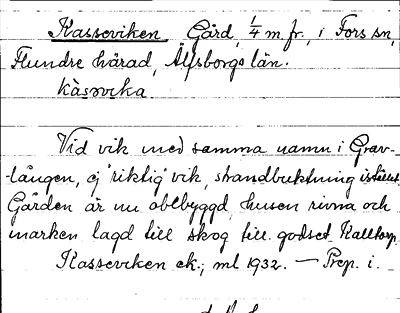 Kasseviken Gård, 1/4 m. fr., i Fors sn,
Flundre härad, Älfsborgs län.
kàsəvika
Vid vik med samma namn i Grav-
lången, ej "riktig" vik, strandbuktning istället
Gården är nu obebyggd, husen rivna och
marken lagd till skog till godset Kalltorp.
Kasseviken ek.; ml 1932. — Prep. i.